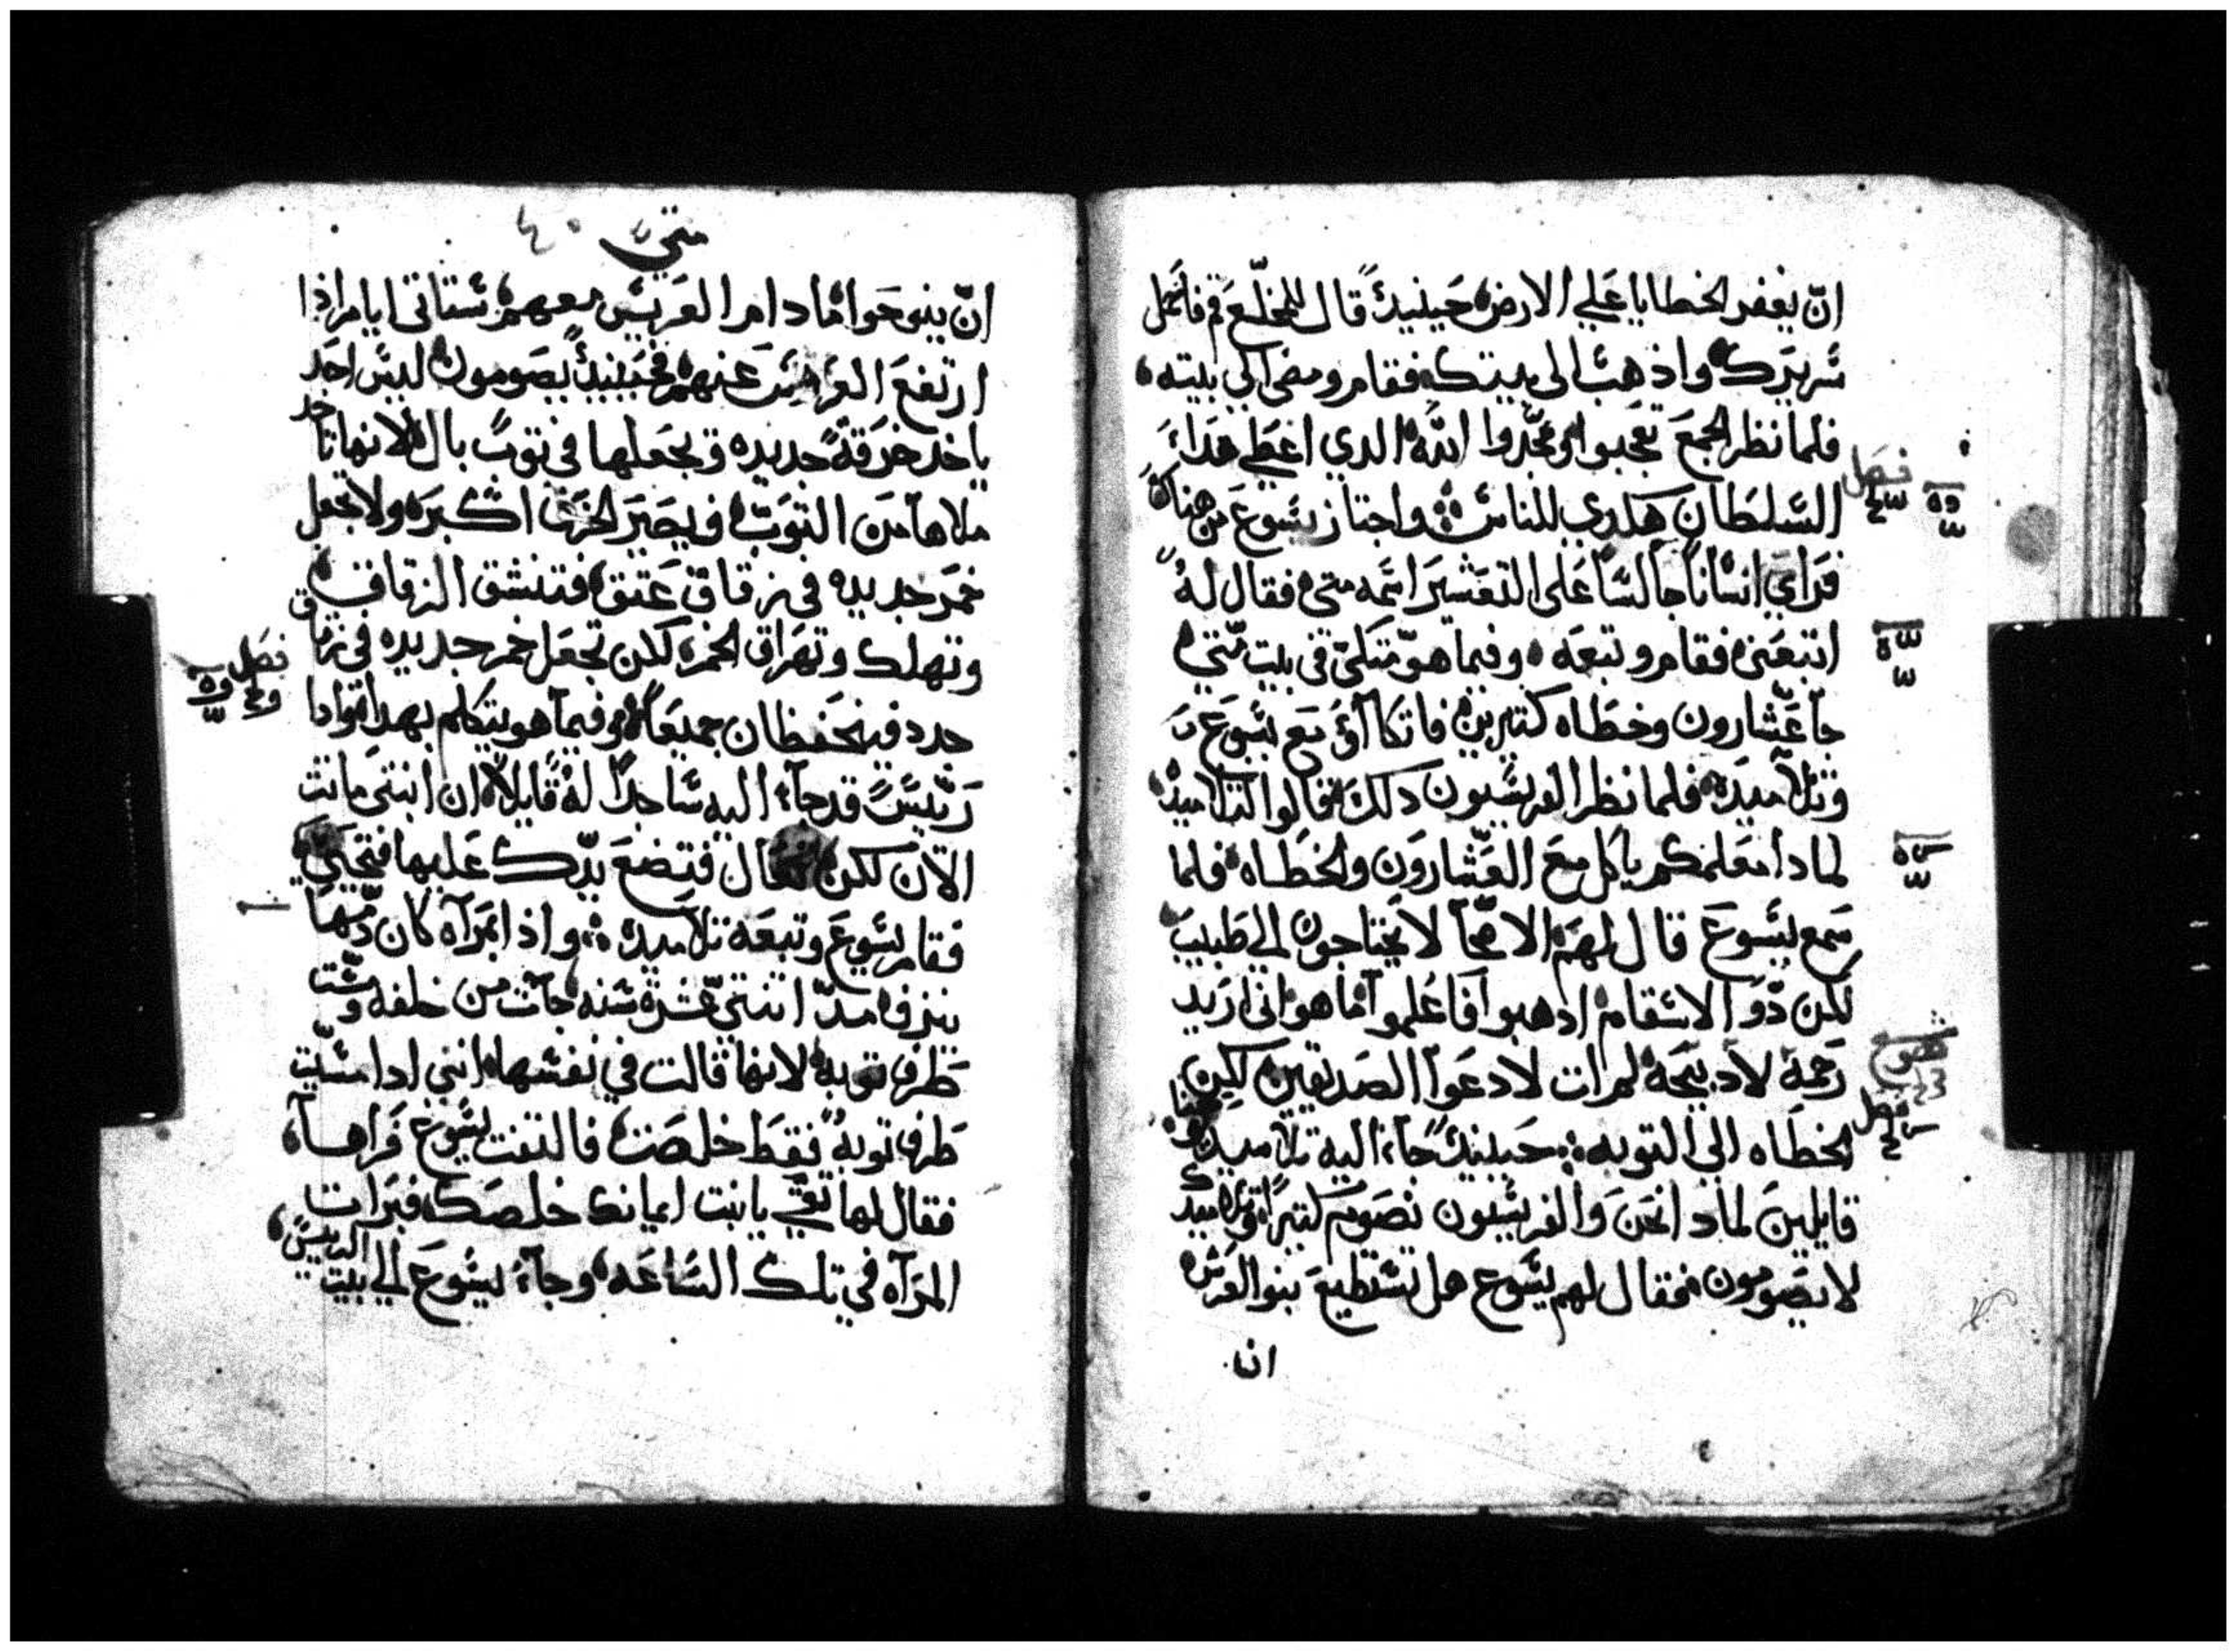 ان يغفر الخطايا علي الارض حينيدً قال للمخلع قم فاحمل
سريرك واذهب الى بيتك فقام ومضى الي بيته
فلما نظر الجمع تعجبوا ومجدوا الله الدي اعطي هدا
السلطان هكدي للناس واجتاز يسوع من هناك
فراي انسانا جالسا على التعشير اسمه متى فقال له
اتبعني فقام وتبعه وفيما هو متكي في بيت متي
جا عشارون وخطاه كتيرين فاتكاؤ مع يسوع
وتلاميده فلما نظر الفريسيون دلك قالوا لتلاميده
لمادا معلمكم ياكل مع العشارون والخطاه فلما
سمع يسوع قال لهم الاصحا لا يحتاجون الي طبيب
لكن دو الاسقام ادهبوا فاعلموا ما هو اني اريد
رحمة لا دبيحة لم ات لادعوا الصديقين لكن
الخطاه الي التوبه حينيدً جاء اليه تلاميد يوحنا
قايلين لمادا نحن والفريسيون نصوم كتيرا وتلاميدك
لا يصومون فقال لهم يسوع هل تستطيع بنو العرس
ان
فصل
فصل
متي ٤٠
ان ينوحوا ما دام العريس معهم ستاتي ايام اذا
ارتفع العريس عنهم فحينيدً يصومون ليس احد
ياخد خرقة جديده ويجعلها في توب بال لانها تاخد
ملاها من التوب فيصير الخرق اكبر ولا تجعل
خمر جديده في زقاق عتق فتنشق الزقاق
وتهلك وتهراق الخمر لكن تجعل خمر جديده في زقاق
جدد فيحفظان جميعاً وفيما هو يتكلم بهدا وادا
رييس قد جاء اليه ساجداً له قايلا ان ابنتي ماتت
الان لكن تعال فتضع يدك عليها فتحيي
فقام يسوع وتبعه تلاميده واذا امراه كان دمها
ينزف مند اتنتي عشرة سنه جات من خلفه ومست
طرف توبه لانها قالت في نفسها انني ادا مسيت
طرف توبه فقط خلصت فالتفت يسوع فراها
فقال لها تقي يا بنت ايمانك خلصك فبرات
المراه في تلك الساعه وجاء يسوع الي بيت الرييس
فصل